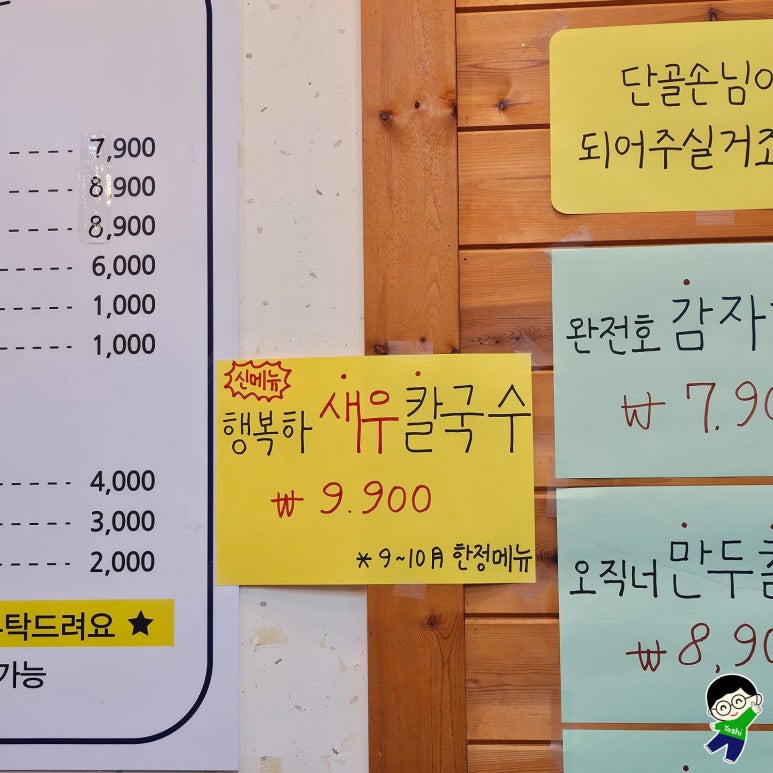 7,900
8,900
8,900
6,000
1,000
1,000
4,000
3,000
2,000
탁드려요 ★
가능
신메뉴
행복하 새우칼국수
₩ 9.900
* 9~10月 한정메뉴
단골손님이
되어주실거죠
완전호 감자
₩ 7.90
오직너 만두
₩ 8,90
Yoshi